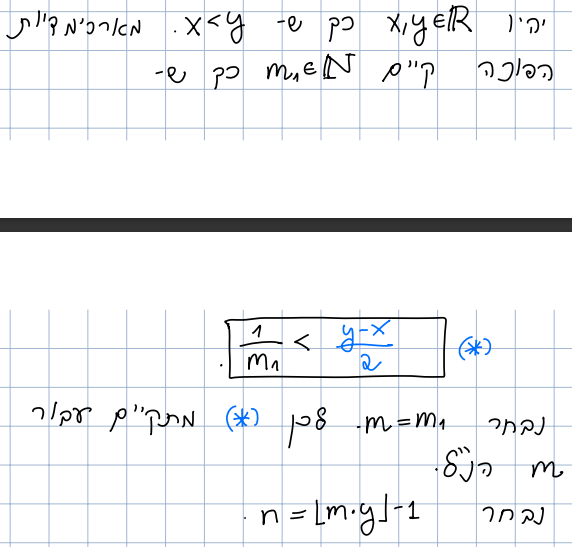 יהיו x,y∈ℝ כך ש- x<y. מארכימדיות
הפוכה קיים m₁∈ℕ כך ש-
1/m₁ < (y-x)/2 . (*)
נבחר m=m₁. לכן (*) מתקיים עבור
m הנ"ל.
נבחר n = ⌊m·y⌋-1 .